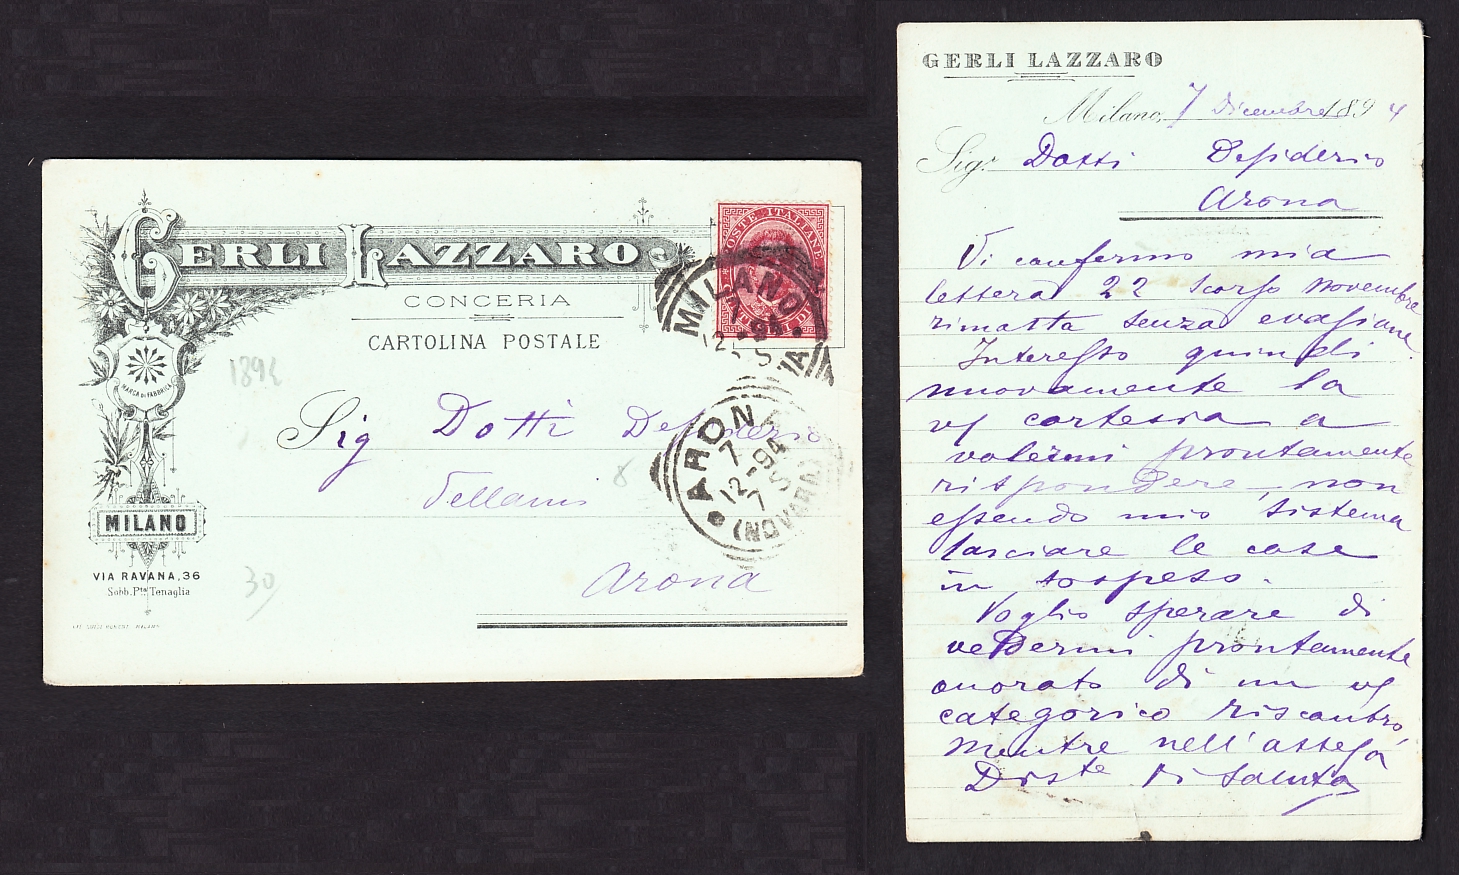 GERLI LAZZARO
CONCERIA
CARTOLINA POSTALE
POSTE ITALIANE
MILANO
12
ARONA
7
12-94
7 S
(NOVARA)
1894
MARCA DI FABBRICA
Sig Dotti Desiderio
8
Pellami
Arona
MILANO
VIA RAVANA, 36
Sobb. Pta Tenaglia
30
GERLI LAZZARO
Milano, 7 Dicembre 1894
Sigr. Dotti Desiderio
Arona
Vi confermo mia
lettera 22 scorso Novembre
rimasta senza evasione.
Interesso quindi
nuovamente la
vs cortesia a
volermi prontamente
rispondere, non
essendo mio sistema
lasciare le cose
in sospeso.
Voglio sperare di
vedermi prontamente
onorato di un vs
categorico riscontro,
mentre nell'attesa
Dist.te Vi saluto